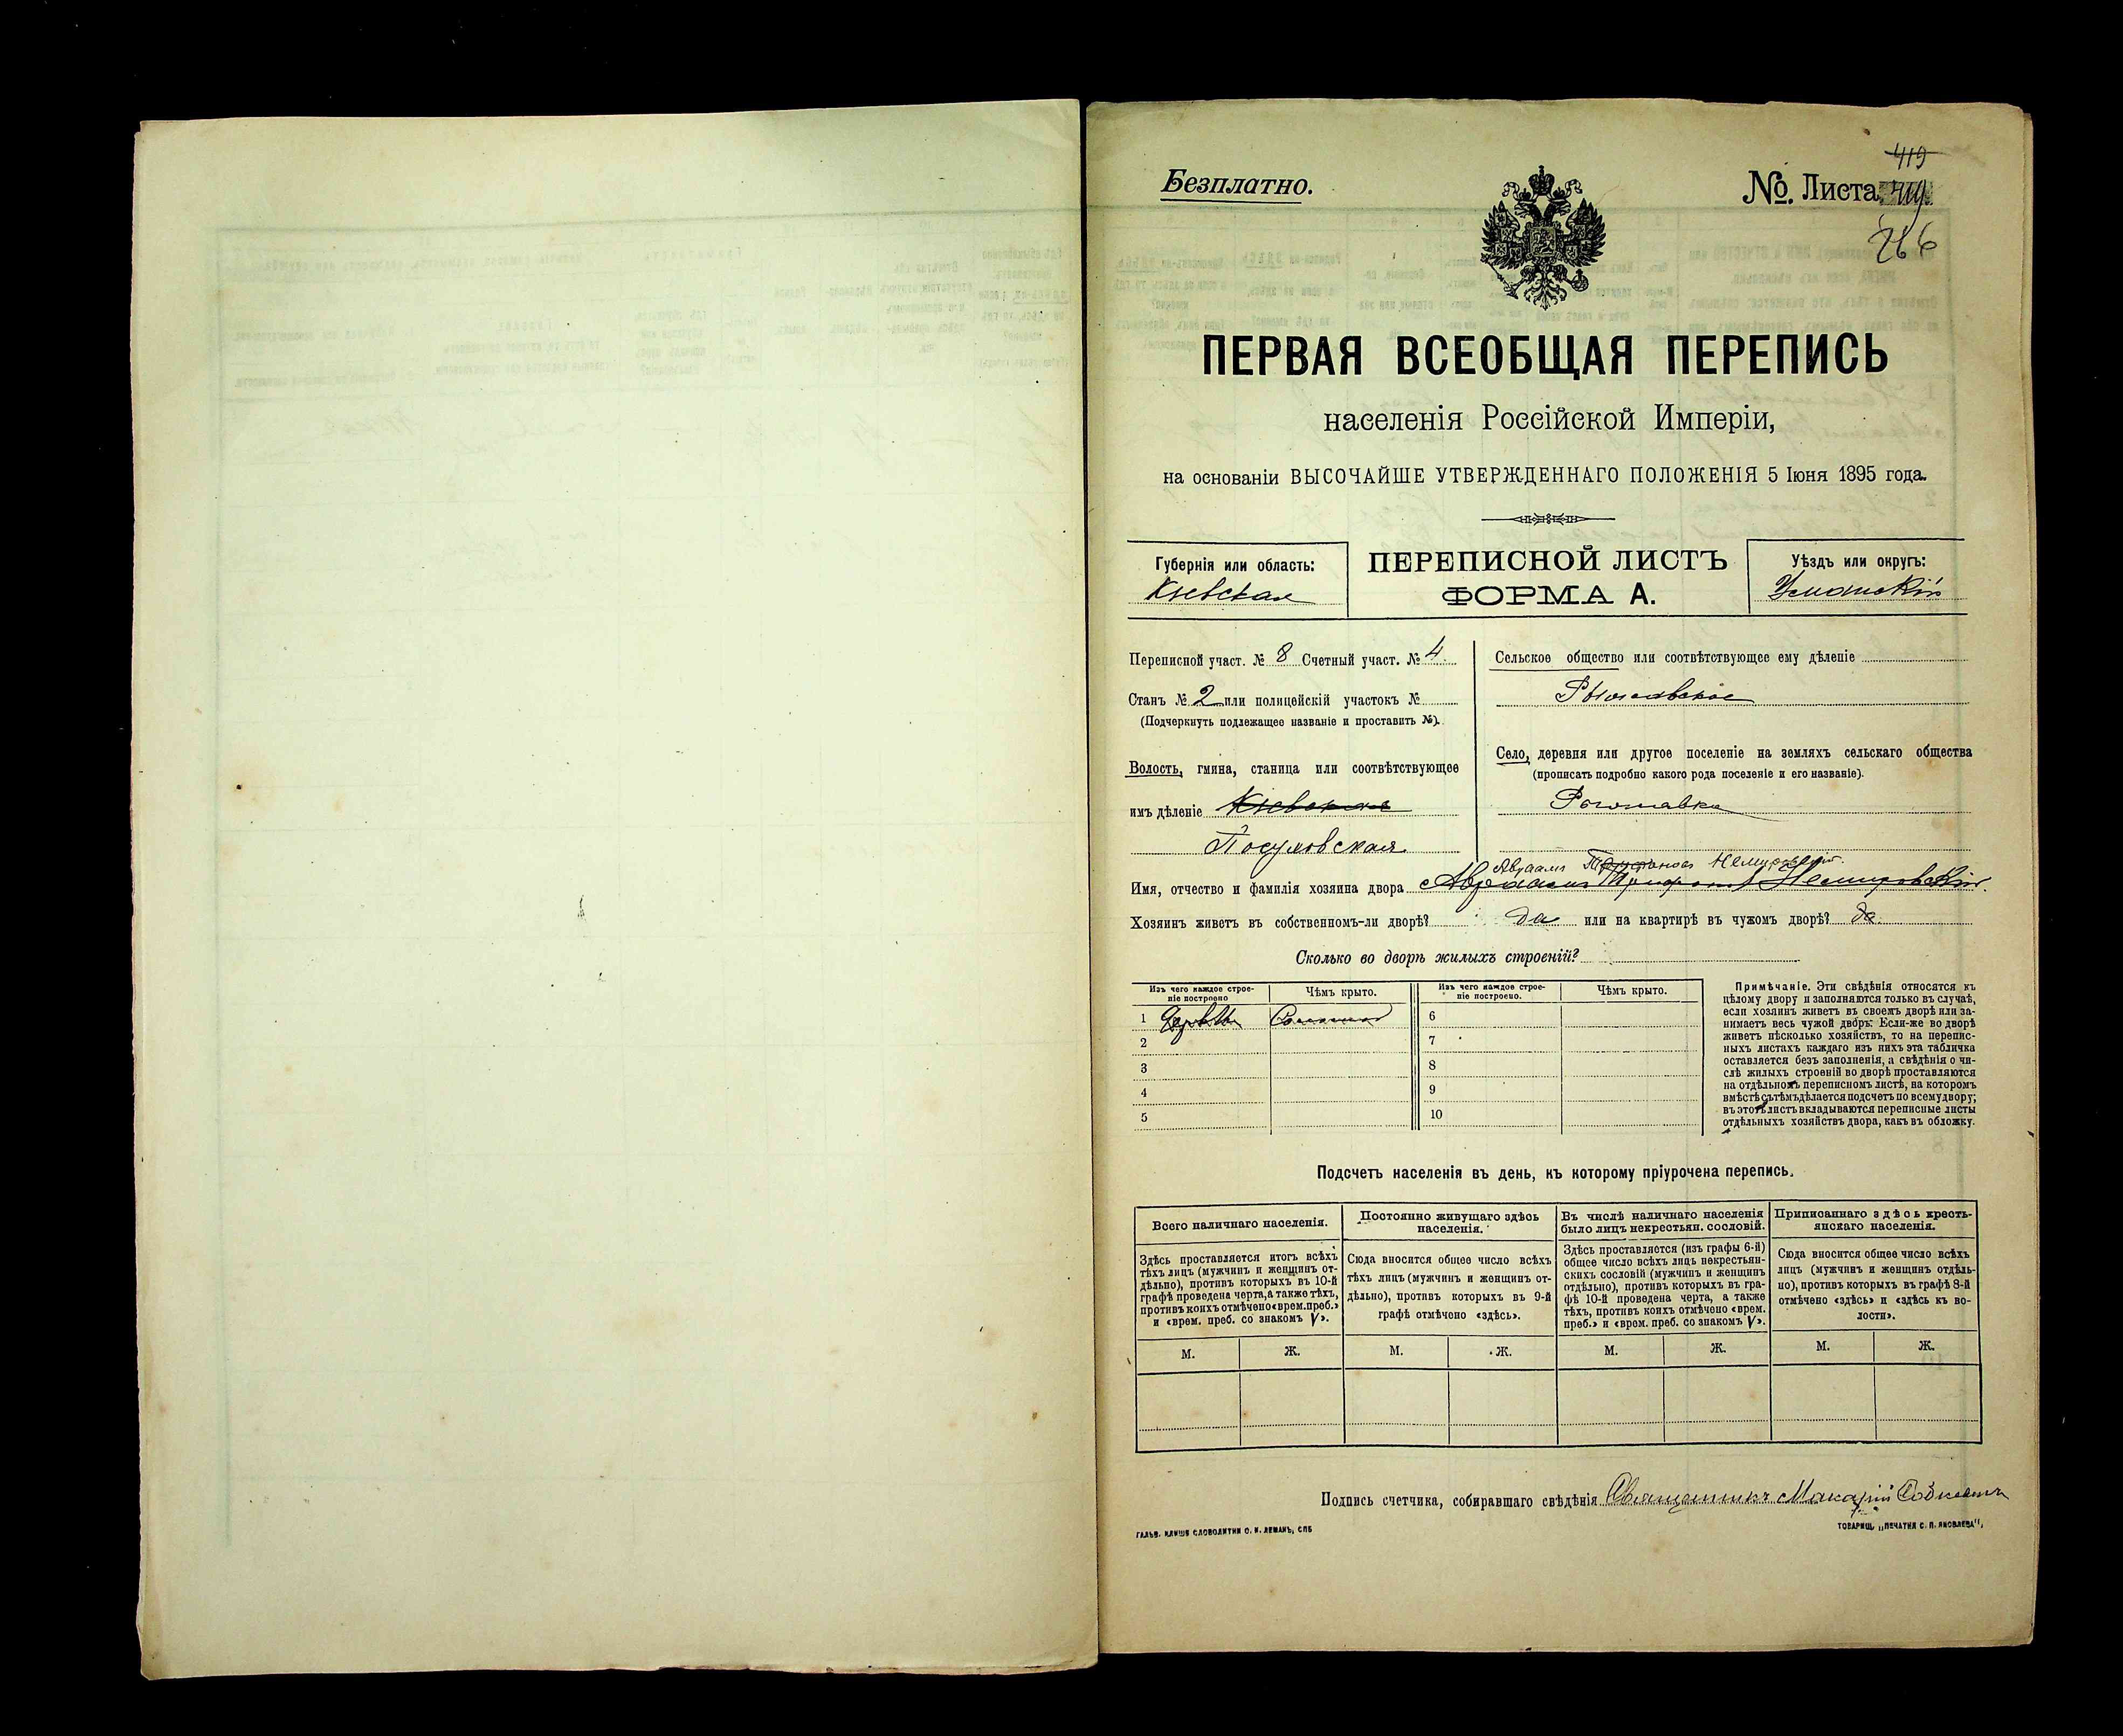 419
Безплатно.
№. Листа 419.
266
ПЕРВАЯ ВСЕОБЩАЯ ПЕРЕПИСЬ
населенія Россійской Имперіи,
на основаніи ВЫСОЧАЙШЕ УТВЕРЖДЕННАГО ПОЛОЖЕНІЯ 5 Іюня 1895 года.
Губернія или область:
Кіевская
ПЕРЕПИСНОЙ ЛИСТЪ
ФОРМА А.
Уѣздъ или округъ:
Уманскій
Переписной участ. № 8 Счетный участ. № 4.
Станъ № 2 или полицейскій участокъ №
(Подчеркнуть подлежащее названіе и проставить №).
Волость, гмина, станица или соотвѣтствующее
имъ дѣленіе Кіевская
Посуховская
Сельское общество или соотвѣтствующее ему дѣленіе
Село, деревня или другое поселеніе на земляхъ сельскаго общества
(прописать подробно какого рода поселеніе и его названіе).
Авраамъ Немировскій.
Имя, отчество и фамилія хозяина двора Авраамъ Немировскій.
Хозяинъ живетъ въ собственномъ-ли дворѣ? да или на квартирѣ въ чужомъ дворѣ? да.
Сколько во дворѣ жилыхъ строеній?
Изъ чего каждое строе-
ніе построено
Чѣмъ крыто.
Изъ чего каждое строе-
ніе построено.
Чѣмъ крыто.
1
2
3
4
5
6
7
8
9
10
Примѣчаніе. Эти свѣдѣнія относятся къ
цѣлому двору и заполняются только въ случаѣ,
если хозяинъ живетъ въ своемъ дворѣ или за-
нимаетъ весь чужой дворъ. Если-же во дворѣ
живетъ нѣсколько хозяйствъ, то на перепис-
ныхъ листахъ каждаго изъ нихъ эта табличка
оставляется безъ заполненія, а свѣдѣнія о чи-
слѣ жилыхъ строеній во дворѣ проставляются
на отдѣльномъ переписномъ листѣ, на которомъ
вмѣстѣ съ тѣмъ дѣлается подсчетъ по всему двору;
въ этотъ листъ вкладываются переписные листы
отдѣльныхъ хозяйствъ двора, какъ въ обложку.
Подсчетъ населенія въ день, къ которому пріурочена перепись.
Всего наличнаго населенія.
Здѣсь проставляется итогъ всѣхъ
тѣхъ лицъ (мужчинъ и женщинъ от-
дѣльно), противъ которыхъ въ 10-й
графѣ проведена черта, а также тѣхъ,
противъ коихъ отмѣчено «врем. преб.»
и «врем. преб. со знакомъ V».
М. Ж.
Постоянно живущаго здѣсь
населенія.
Сюда вносится общее число всѣхъ
тѣхъ лицъ (мужчинъ и женщинъ от-
дѣльно), противъ которыхъ въ 9-й
графѣ отмѣчено «здѣсь».
М. Ж.
Въ числѣ наличнаго населенія
было лицъ некрестьян. сословій.
Здѣсь проставляется (изъ графы 6-й)
общее число всѣхъ лицъ некрестьян-
скихъ сословій (мужчинъ и женщинъ
отдѣльно), противъ которыхъ въ гра-
фѣ 10-й проведена черта, а также
тѣхъ, противъ коихъ отмѣчено «врем.
преб.» и «врем. преб. со знакомъ V».
М. Ж.
Приписаннаго здѣсь кресть-
янскаго населенія.
Сюда вносится общее число всѣхъ
лицъ (мужчинъ и женщинъ отдѣль-
но), противъ которыхъ въ графѣ 8-й
отмѣчено «здѣсь» и «здѣсь къ во-
лости».
М. Ж.
Подпись счетчика, собиравшаго свѣдѣнія Священникъ Макарій
ГАЛЬВ. КЛИШЕ СЛОВОЛИТНИ О. И. ЛЕМАНЪ, СПБ
ТОВАРИЩ. „ПЕЧАТНЯ С. П. ЯКОВЛЕВА“,